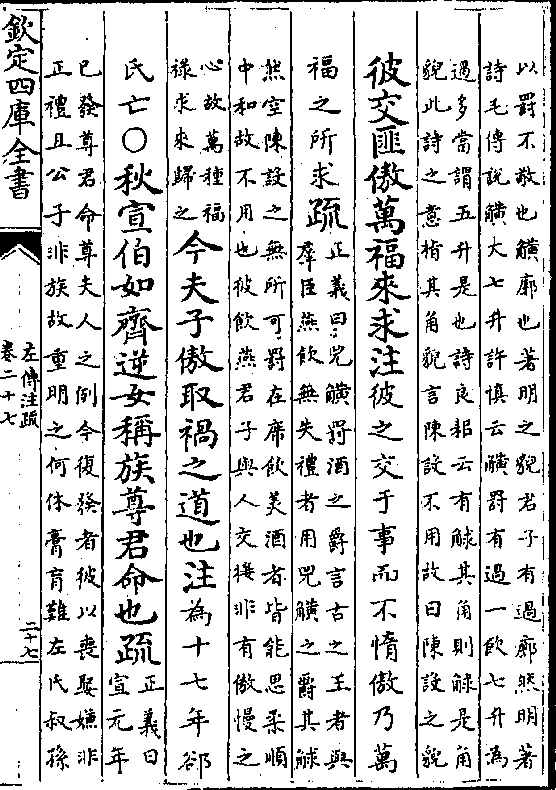 以罰不敬也觵廓也著明之貌君子有過廓然明著
詩毛傳說觵大七升許慎云觵罰有過一飲七升為
過多當謂五升是也詩良耜云有觩其角則觩是角
貌此詩之意指其角貌言陳設不用故曰陳設之貌
彼交匪傲萬福來求注彼之交于事而不惰傲乃萬
福之所求疏
正義曰兕觵罰酒之爵言古之王者與
羣臣燕飲無失禮者用兕觵之爵其觩
然空陳設之無所可罰在席飲美酒者皆能思柔順
中和故不用也彼飲燕君子與人交接非有傲慢之
心故萬種福
祿求來歸之
今夫子傲取禍之道也注為十七年郤
氏亡○秋宣伯如齊逆女稱族尊君命也疏
正義曰
宣元年
已發尊君命尊夫人之例今復發者彼以喪娶嫌非
正禮且公子非族故重明之何休膏肓難左氏叔孫
欽定四庫全書
左傳注疏
卷二十七
二十七